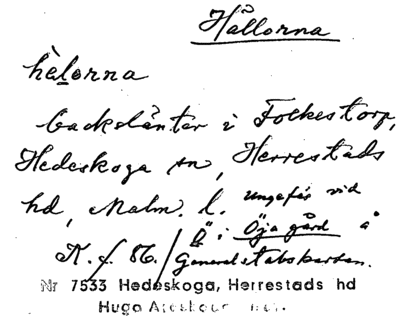 Hållorna
hèlorna
backslänter i Folkestorp,
Hedeskoga sn, Herrestads
hd, Malm. l. ungefär vid
"Ö" i Öja gård å
K. f. 86. / Generalstabskartan.
Nr 7533 Hedeskoga, Herrestads hd
Hugo Areskoug